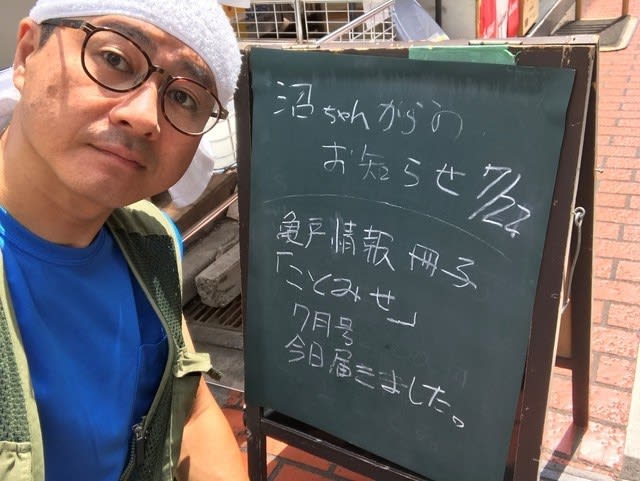 沼ちゃんからの
お知らせ 7/22
亀戸情報冊子
「ことみせ」
7月号
今日届きました。